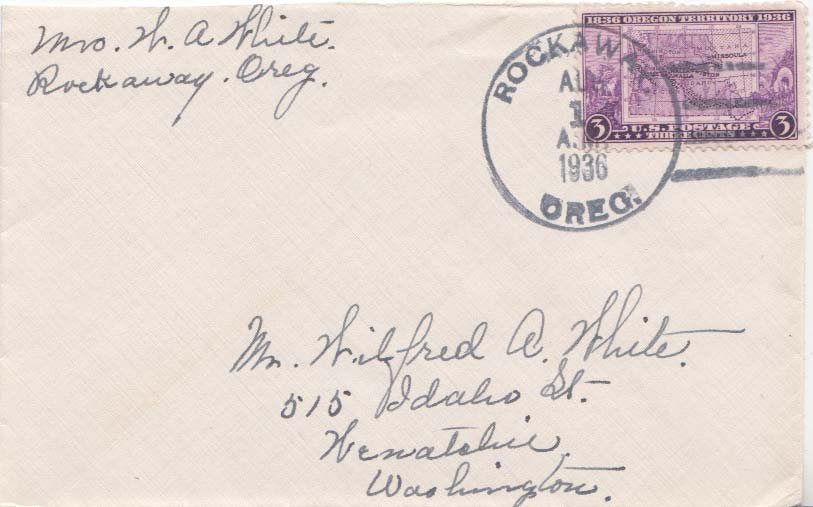 Mrs. W. A White.
Rockaway. Oreg.
1836 OREGON TERRITORY 1936
MISSOULA
3 U.S. POSTAGE 3
THREE CENTS
ROCKAWAY
1
A.M.
1936
OREG.
Mr. Wilfred A. White.
515 Idaho St.
Wenatchie,
Washington.